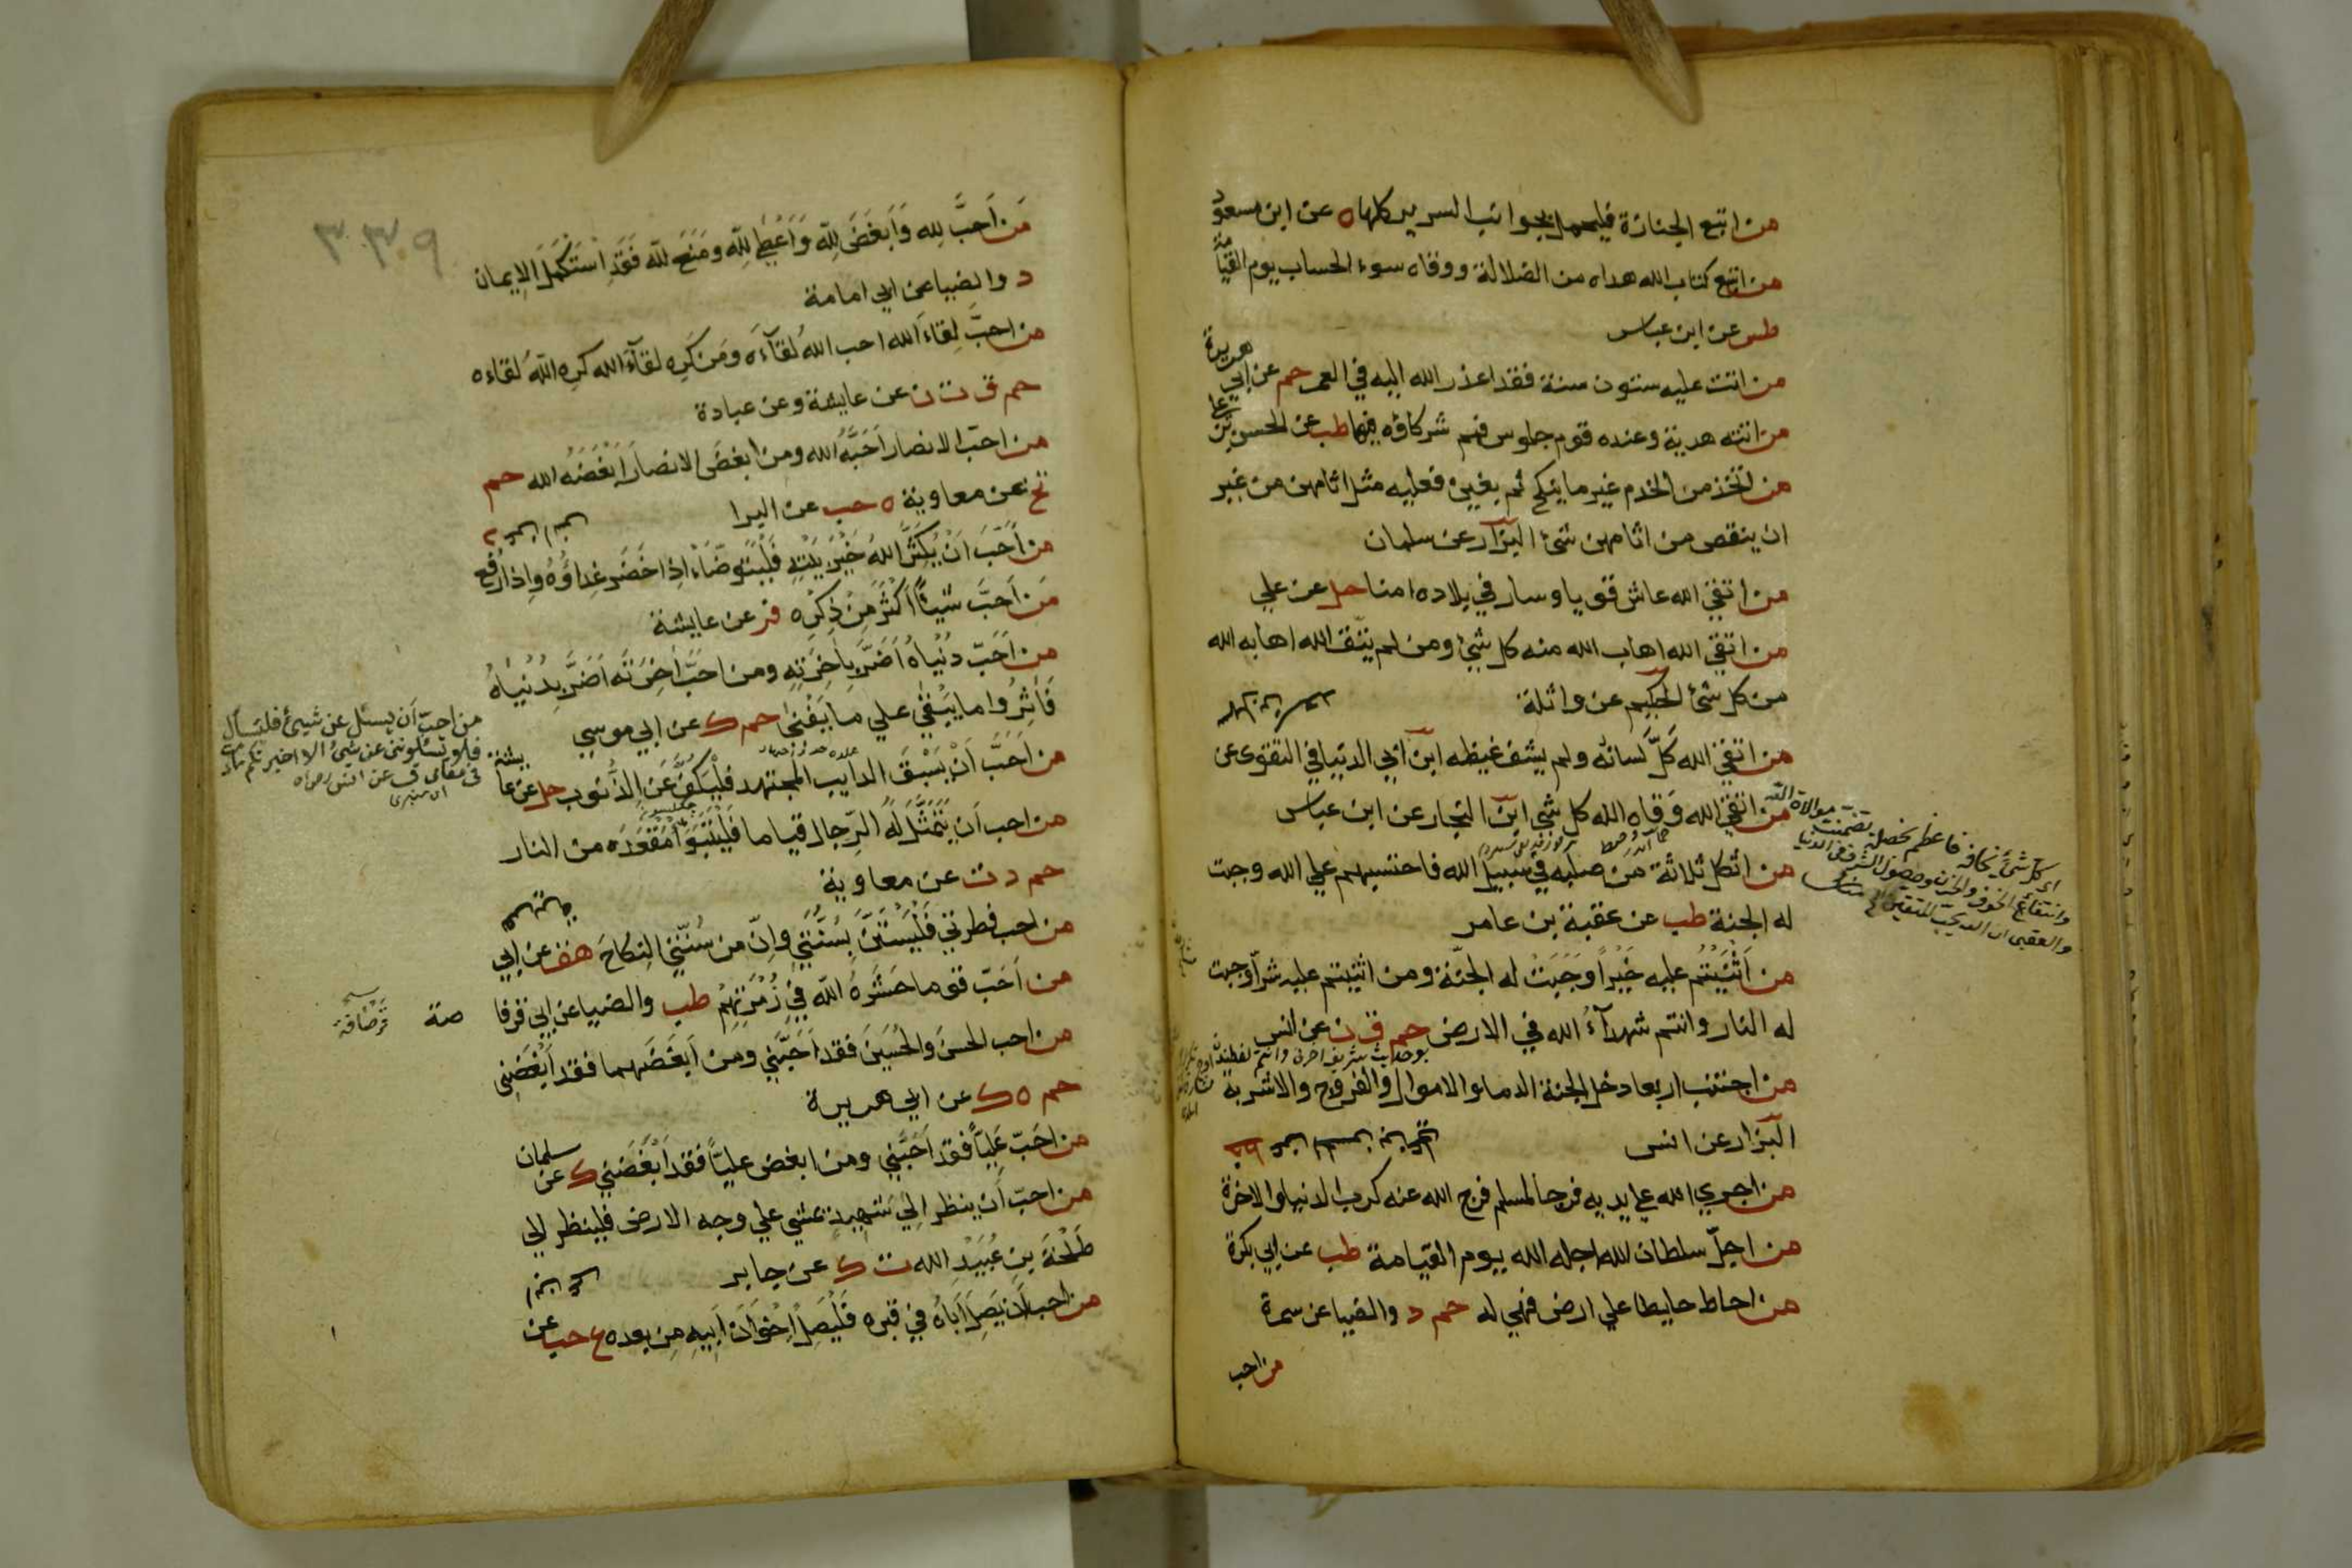 من اتبع الجنازة فليحمل بجوانب السرير كلها ه عن ابن مسعود
من اتبع كتاب الله هداه من الضلالة ووقاه سوء الحساب يوم القيامة
طس عن ابن عباس
من اتت عليه ستون سنة فقد اعذر الله اليه في العمر حم عن ابي هريرة
من اتته هدية وعنده قوم جلوس فهم شركاؤه فيها طب عن الحسن بن علي
من اتخذ من الخدم غير ما ينكح ثم بغين فعليه مثل اثامهن من غير
ان ينقص من اثامهن شئ البزار عن سلمان
من اتقي الله عاش قويا وسار في بلاده امنا حل عن علي
من اتقي الله اهاب الله منه كل شئ ومن لم يتق الله اهابه الله
من كل شئ الحكيم عن واثلة
من اتقي الله كلّ لسانه ولم يشف غيظه ابن ابي الدنيا في التقوى عن
من اتقي الله وقاه الله كل شئ ابن النجار عن ابن عباس
من اثكل ثلاثة من صلبه في سبيل الله فاحتسبهم علي الله وجبت
له الجنة طب عن عقبة بن عامر
من اَثْنَيْتُم عليه خَيْراً وَجَبَتْ له الجنّة ومن اثنيتم عليه شرّاً وجبت
له النار وانتم شهدآءُ الله في الارض حم ق ن عن انس
من اجتنب اربعا دخل الجنة الدما والاموال والفروج والاشربة
البزار عن انس
من اجري الله علي يديه فرجا لمسلم فرج الله عنه كرب الدنيا والاخرة
من اجلّ سلطان الله اجله الله يوم القيامة طب عن ابي بكرة
من احاط حايطا علي ارض فهي له حم د والضيا عن سمرة
من احب
اى كل شئ يخافه فاعظم بخصلة تضمنت موالاة الله
وانتفاع الخوف والحزن وحصول الشرف في الدنيا
والعقبى ان الله يحب المتقين
٣٣٠٩
مَن اَحَبَّ لِلهِ وَاَبغَضَ لِلّهِ وَاَعْطٰي لِلّهِ ومَنَعَ للّه فَقَدِ اسْتَكْمَلَ الاِيمان
د والضيا عن ابي امامة
من احبّ لِقاءَ الله احب اللهُ لقآءَه ومَن كَرِه لقآءَ الله كَرِه اللهُ لقاءه
حم ق ت ن عن عايشة وعن عبادة
من احبّ الانصار اَحَبَّهُ الله ومن ابغضَ الانصار اَبْغَضَهُ الله حم
تخ عن معاوية ه حب عن البرا
من اَحَبّ اَنْ يُكْثِرَ اللهُ خَيْرَ بَيْتِهِ فَلْيَتَوضّأ اذا حَضَر غداؤُهُ واِذا رُفع
من اَحَبَّ شَيْئاً اَكْثَرَ مِنْ ذِكْرِه فر عن عايشة
من اَحَبّ دُنْيَاهُ اَضَرَّ بِاٰخِرَتِهِ ومن احَبَّ اٰخِرَتَه اَضَرَّ بِدُنْيَاهُ
فَاٰثِرُوا ما يَبْقٰي علي ما يَفْنٰي حم ك عن ابي موسي
من اَحَبَّ اَنْ يَسْبِقَ الدايب المجتهد فلْيَكُفَّ عَن الذُّنوب حل عن عايشة
من احب اَن يَتَمَثَّلَ لَهُ الرّجال قياما فَلْيَتَبَوَّأ مَقْعَدَه من النار
حم د ت عن معاوية
من احب فطرتي فَلْيَسْتَنَّ بِسُنَّتِي وانّ من سُنَّتِي النِكاحَ هق عن ابي
من اَحَبّ قوما حَشَرَهُ اللّه فِي زُمْرَتِهِمْ طب والضيا عن ابي قرفا
صة
من احب الحسَن والحُسَين فقد اَحَبَّنِي ومن اَبغَضَهما فقد اَبْغَضَنِى
حم ه ك عن ابي هريرة
من احَبّ عَلِيّاً فقد اَحَبَّنِي ومن ابغض عليّاً فقد اَبْغَضَنِي ك عن سلمان
من احبّ اَن ينظر اِلٰي شهيد يمشي علي وجه الارض فلينظر الي
طَلْحَةَ بنِ عُبَيْدِ الله ت ك عن جابر
من احب اَن يَصِلَ اَبَاهُ في قبْرِه فَلْيَصِلْ اِخْوَانَ اَبيهِ مِن بعده ع حب عن
من احبّ اَن يسئل عن شيئ فليسأل
فلا تسئلونى عن شئ الا اخبرتكم
فى مقامى ق عن انس